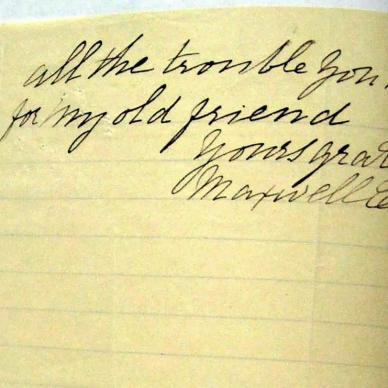 all the trouble you
for my old friend
Yours grat
Maxwell